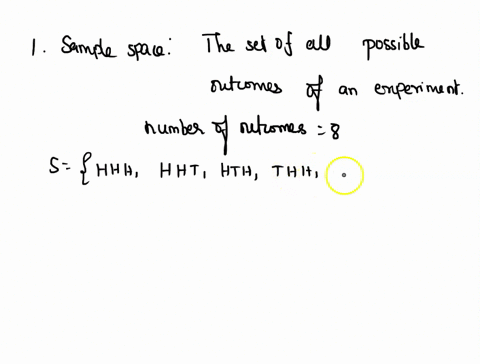 1. Sample space: The set of all possible
outcomes of an experiment.
number of outcomes = 8
S = { HHH, HHT, HTH, THH,